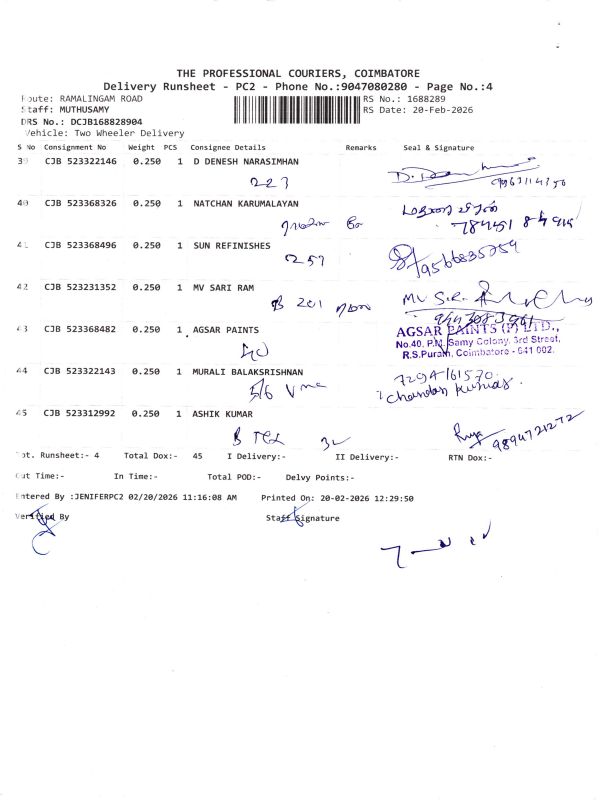 THE PROFESSIONAL COURIERS, COIMBATORE
Delivery Runsheet - PC2 - Phone No.:9047080280 - Page No.:4
Route: RAMALINGAM ROAD RS No.: 1688289
Staff: MUTHUSAMY RS Date: 20-Feb-2026
DRS No.: DCJB168828904
Vehicle: Two Wheeler Delivery
S No Consignment No Weight PCS Consignee Details Remarks Seal & Signature
39 CJB 523322146 0.250 1 D DENESH NARASIMHAN
223
40 CJB 523368326 0.250 1 NATCHAN KARUMALAYAN
41 CJB 523368496 0.250 1 SUN REFINISHES
257 9566835759
42 CJB 523231352 0.250 1 MV SARI RAM
B 201
9443083961
43 CJB 523368482 0.250 1 AGSAR PAINTS
AGSAR PAINTS (P) LTD.,
No.40, P.M. Samy Colony, 3rd Street,
R.S.Puram, Coimbatore - 641 002.
40
44 CJB 523322143 0.250 1 MURALI BALAKSRISHNAN
5/6 7294161570
Chandan Kumar
45 CJB 523312992 0.250 1 ASHIK KUMAR
9894721272
Tot. Runsheet:- 4 Total Dox:- 45 I Delivery:- II Delivery:- RTN Dox:-
Out Time:- In Time:- Total POD:- Delvy Points:-
Entered By :JENIFERPC2 02/20/2026 11:16:08 AM Printed On: 20-02-2026 12:29:50
Verified By Staff Signature